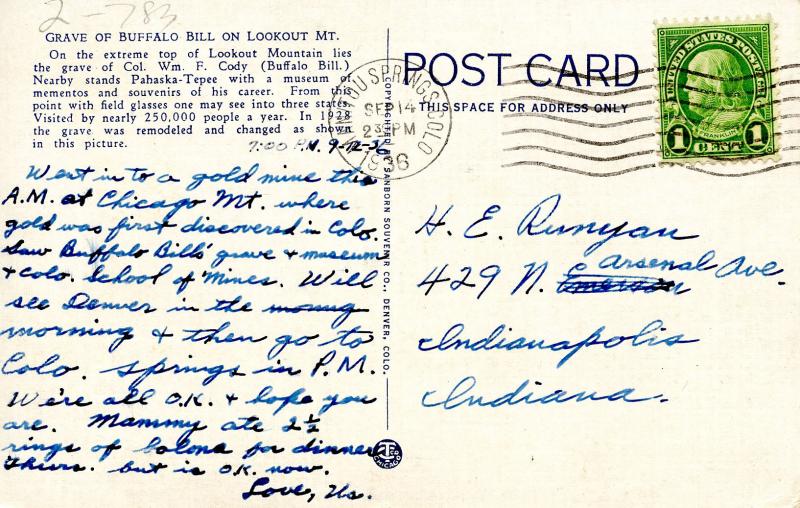 2-783
GRAVE OF BUFFALO BILL ON LOOKOUT MT.
On the extreme top of Lookout Mountain lies
the grave of Col. Wm. F. Cody (Buffalo Bill.)
Nearby stands Pahaska-Tepee with a museum of
mementos and souvenirs of his career. From this
point with field glasses one may see into three states.
Visited by nearly 250,000 people a year. In 1928
the grave was remodeled and changed as shown
in this picture.
7:00 P.M. 9-12-36
Went in to a gold mine this
A.M. at Chicago Mt. where
gold was first discovered in Colo.
Saw Buffalo Bill's grave + museum
+ Colo. School of Mines. Will
see Denver in the
morning + then go to
Colo. Springs in P.M.
We're all O.K. + hope you
are. Mammy ate 2 1/2
rings of bolona for dinner
Thurs. but is O.K. now.
Love, Us.
COPYRIGHTED BY SANBORN SOUVENIR CO., DENVER, COLO.
CHICAGO
POST CARD
THIS SPACE FOR ADDRESS ONLY
MANITOU SPRINGS COLO
SEP 14
230 PM
1936
UNITED STATES POSTAGE
FRANKLIN
1 CENT 1
H. E. Runyan
429 N. Emerson Arsenal Ave.
Indianapolis
Indiana.